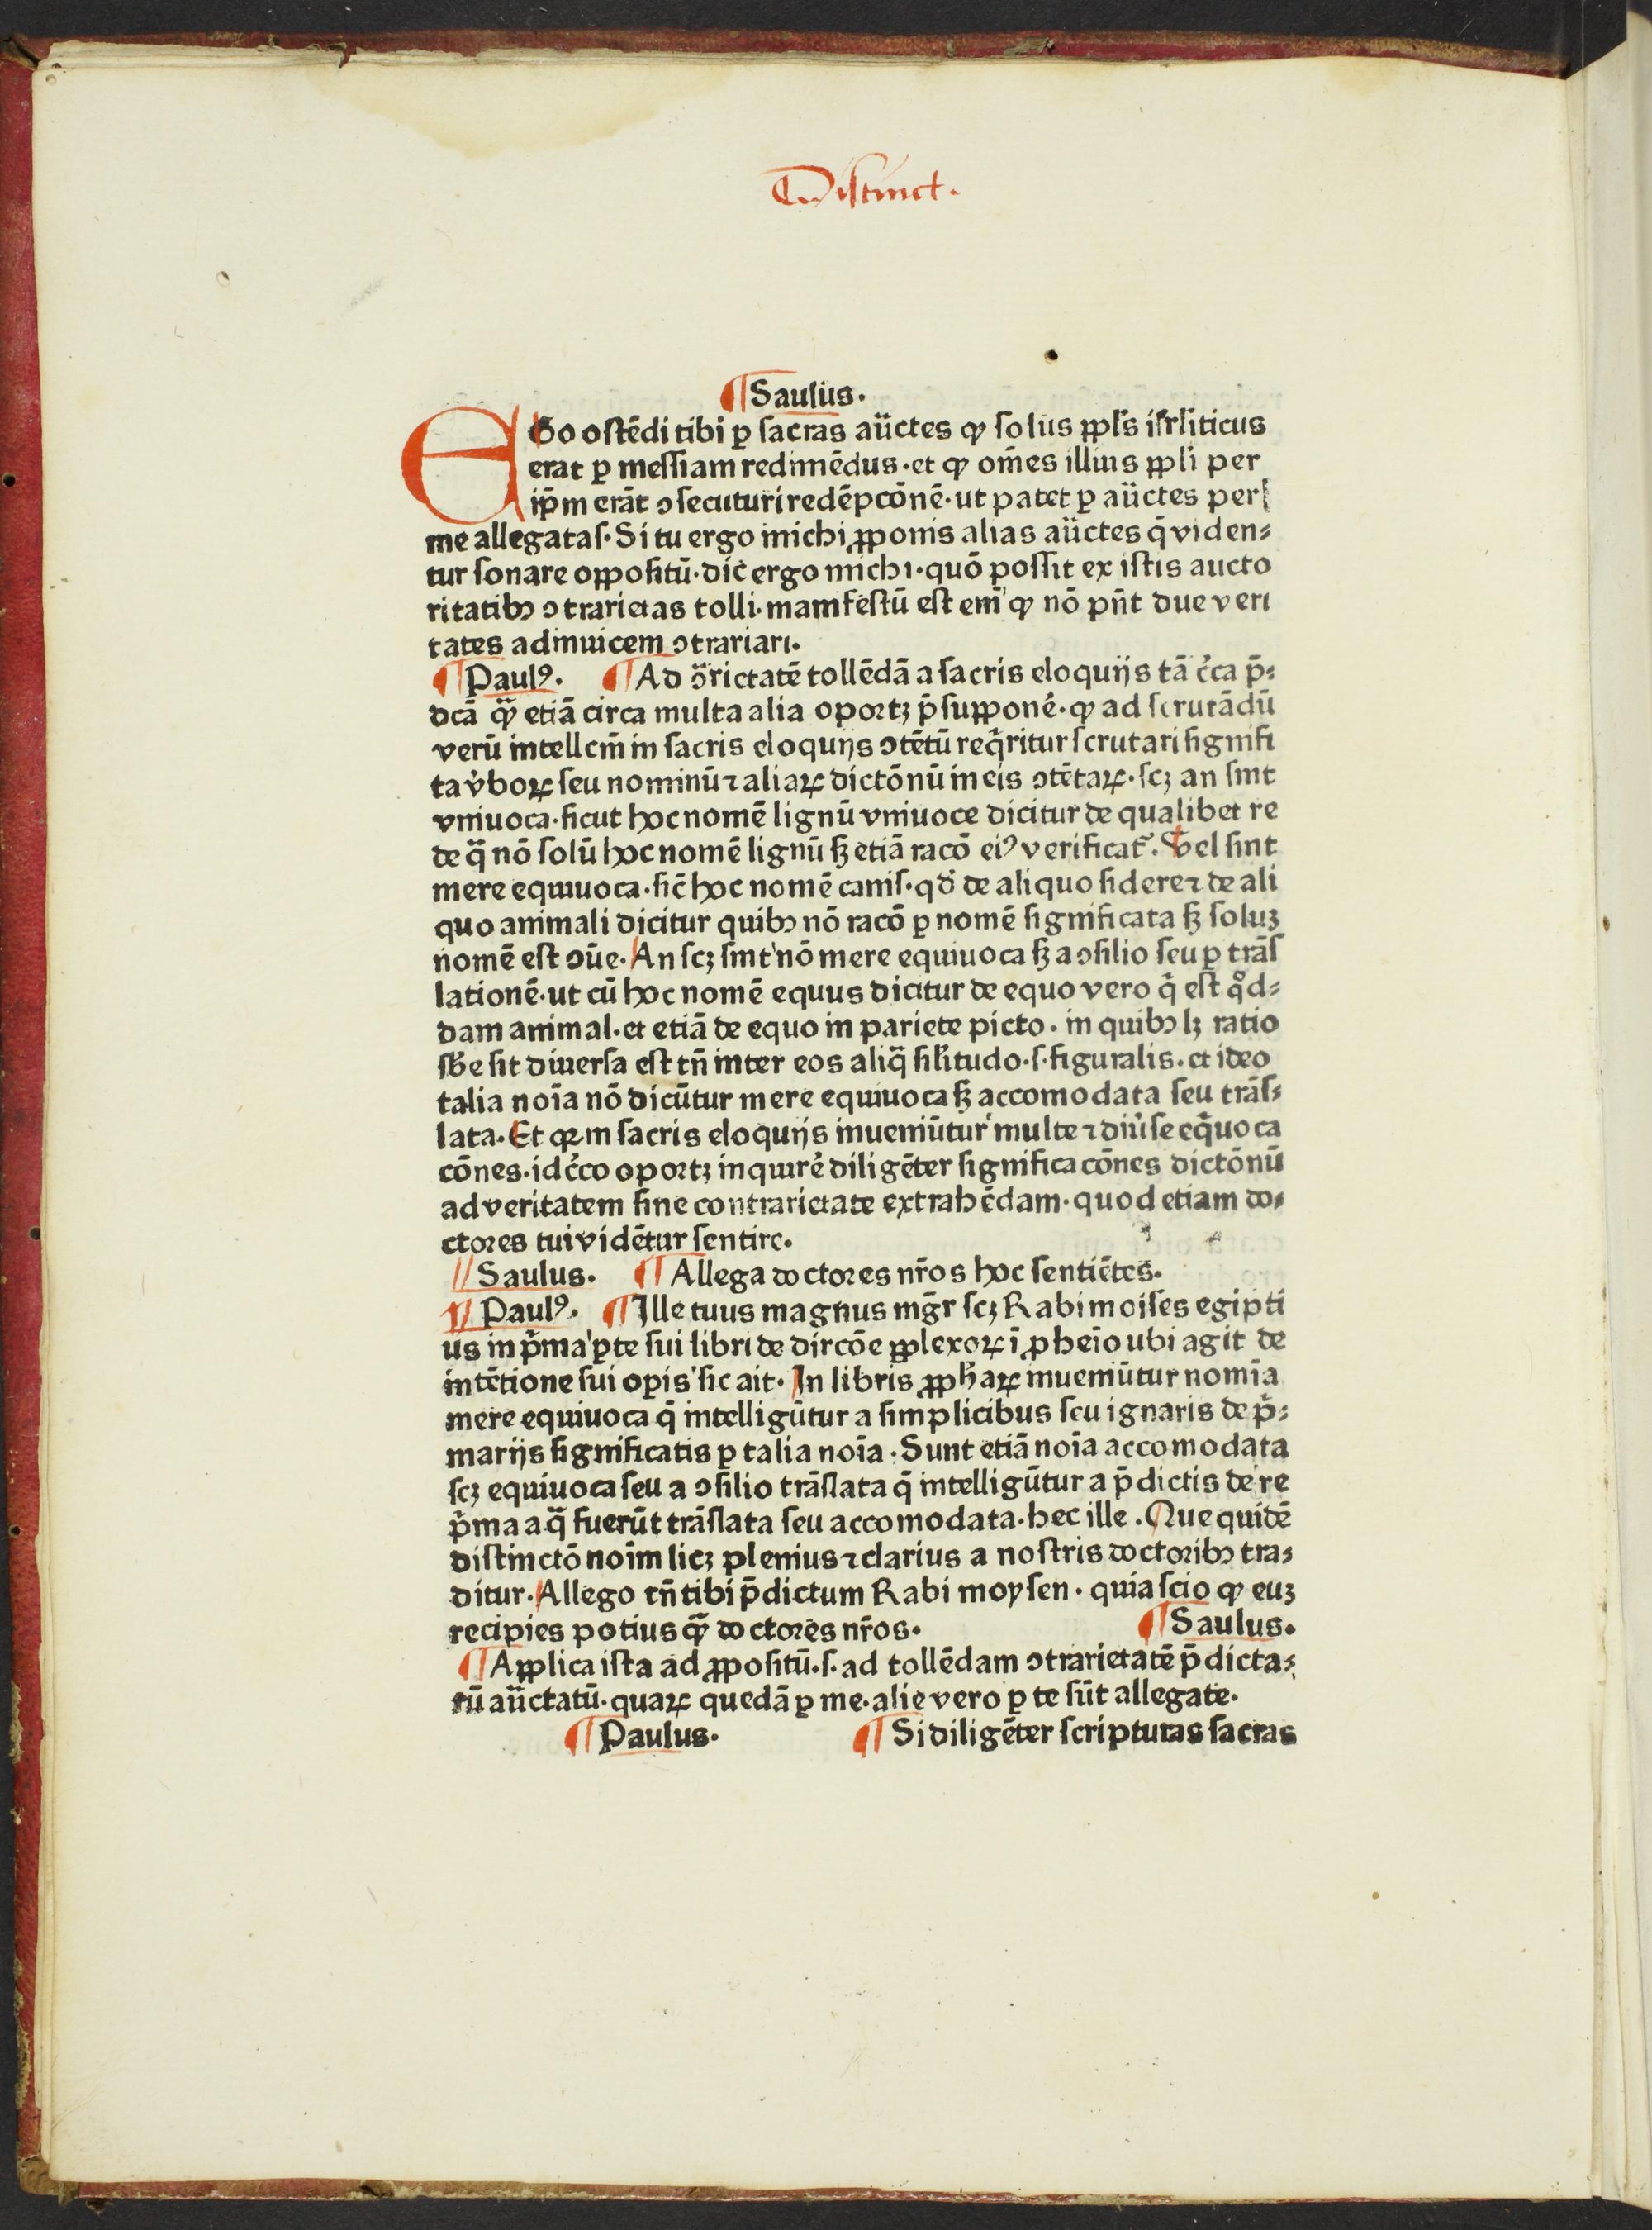 Distinct.
¶Saulus.
EGo ostēdi tibi ꝑ sacras aūctes ꝙ solus ppl's isrl'iticus
erat ꝑ messiam redimēdus·et ꝙ om̄es illius ppl'i per
ip̄m erāt ↄsecuturi redēpcōnē·ut patet ꝑ aūctes per
me allegatas·Si tu ergo michi ꝓponis alias aūctes q̄ viden⸗
tur sonare oppositū·dic ergo michi·quō possit ex istis aucto
ritatibꝫ ↄtrarietas tolli·manifestū est em̄ ꝙ nō pn̄t due veri
tates adinuicem ↄtrariari.
¶Paulꝰ. ¶Ad ↄ̈rietatē tollēdā a sacris eloquijs tā c̕ca p̄⸗
dcā qᷓ etiā circa multa alia oportꝫ p̄supponē·ꝙ ad scrutādū
verū intellcm̄ in sacris eloquijs ↄtētū req̄ritur scrutari signifi
ta v̕boꝝ seu nominū ⁊ aliaꝝ dictōnū in eis ↄtētaꝝ·scꝫ an sint
vniuoca·sicut hoc nomē lignū vniuoce dicitur de qualibet re
de qᷓ nō solū hoc nomē lignū sꝫ etiā racō eiꝰ verificat᷑. Vel sint
mere equiuoca·sic̄ hoc nomē canis·qd̕ de aliquo sidere ⁊ de ali
quo animali dicitur quibꝫ nō racō ꝑ nomē significata sꝫ soluꝫ
nomē est ↄūe·An scꝫ sint nō mere equiuoca sꝫ a ↄsilio seu ꝑ trās
lationē·ut cū hoc nomē equus dicitur de equo vero q̄ est qͦd⸗
dam animal·et etiā de equo in pariete picto·in quibꝫ lꝫ ratio
sb̄e sit diuersa est tn̄ inter eos aliqᷓ sil'itudo·s·figuralis·et ideo
talia noīa nō dicūtur mere equiuoca sꝫ accomodata seu trās⸗
lata·Et qꝛ in sacris eloquijs inueniūtur multe ⁊ diu̕se eq̄uoca
cōnes·idc̕co oportꝫ inquirē diligēter significacōnes dictōnū
ad veritatem sine contrarietate extrahēdam·quod etiam do⸗
ctores tui vidētur sentire.
¶Saulus. ¶Allega doctores nr̄os hoc sentiētes.
¶Paulꝰ. ¶Ille tuus magnus mḡr scꝫ Rabi moises egipti
us in p̄ma ꝑte sui libri de dircōe ꝑplexoꝝ ī ꝓheīo ubi agit de
intētione sui oꝑis sic ait·In libris ꝓph̄aꝝ inueniūtur nomīa
mere equiuoca q̄ intelligūtur a simplicibus seu ignaris de p̄⸗
marijs significatis ꝑ talia noīa·Sunt etiā noīa accomodata
scꝫ equiuoca seu a ↄsilio trāslata q̄ intelligūtur a p̄dictis de re
p̄ma a qᷓ fuerūt trāslata seu accomodata·hec ille·Que quidē
distinctō noīm licꝫ plenius ⁊ clarius a nostris doctoribꝫ tra⸗
ditur·Allego tn̄ tibi p̄dictum Rabi moysen·quia scio ꝙ euꝫ
recipies potius qᷓ doctores nr̄os. ¶Saulus.
¶Applica ista ad ꝓpositū·s·ad tollēdam ↄtrarietatē p̄dicta⸗
rū aūctatū·quaꝝ quedā ꝑ me·alie vero ꝑ te sūt allegate.
¶Paulus. ¶Si diligēter scripturas sacras